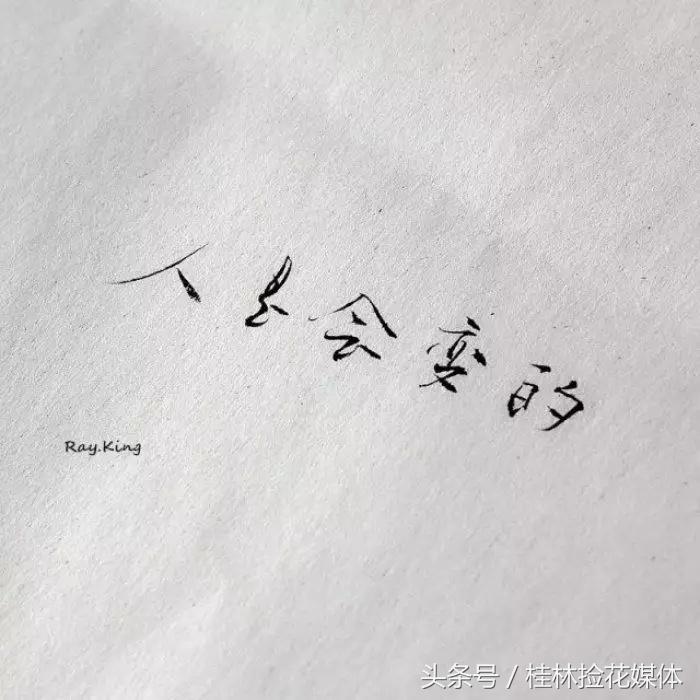 人是会变的
Ray.King
头条号 / 桂林捡花媒体